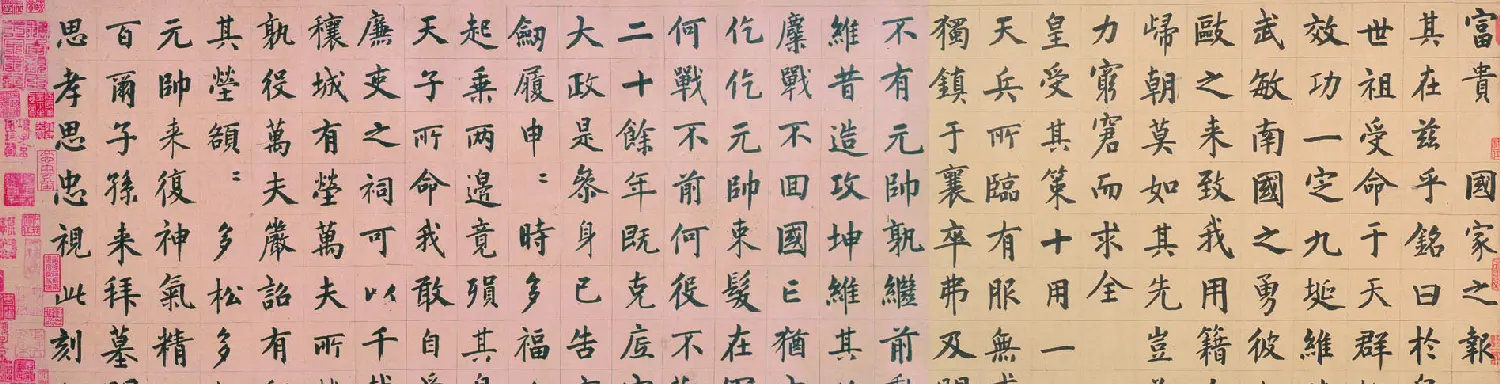 富貴國家之報
其在兹乎銘曰於
世祖受命于天群
效功一定九埏維
武敏南國之勇彼
敺之来致我用籍
歸朝莫如其先豈
力窮窘而求全
皇受其策十用一
天兵所臨有服無
獨鎮于襄卒弗及
不有元帥孰繼前
維昔造攻坤維其
鏖戰不回國亡猶
仡仡元帥束髮在
何戰不前何役不
二十餘年既克底
大政是叅身已告
劒履申〻時多福
起乗两邉竟殞其
天子所命我敢自
廉吏之祠可以千
穰城有塋萬夫所
孰役萬夫嚴詔有
其塋額〻多松多
元帥来復神氣精
百爾子孫来拜墓
思孝思忠視此刻